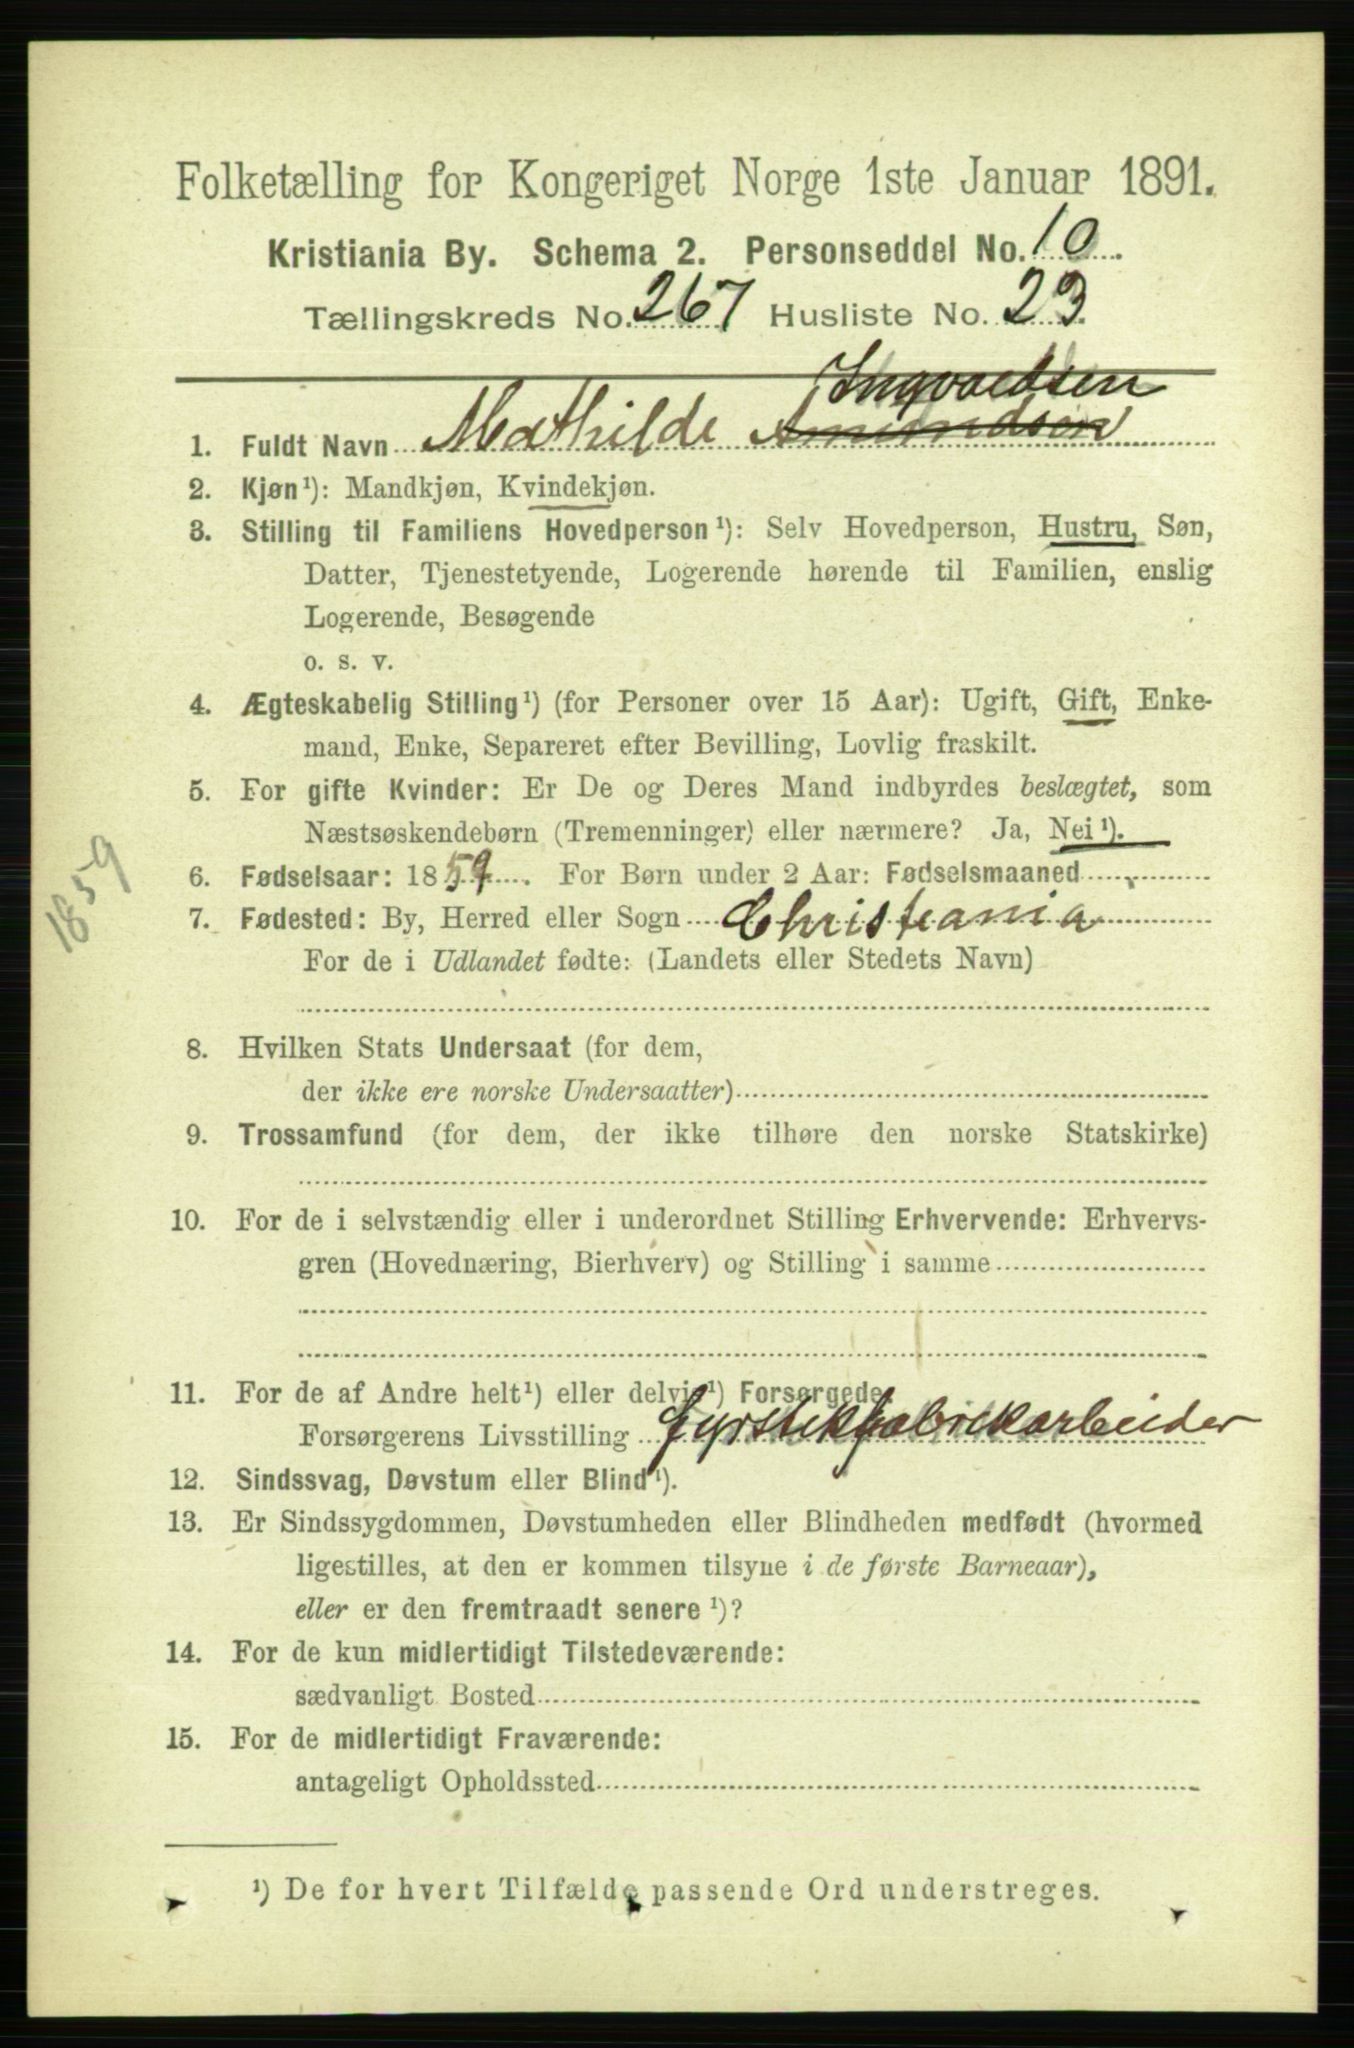 Folketælling for Kongeriget Norge 1ste Januar 1891.
Kristiania By. Schema 2. Personseddel No. 10.
Tællingskreds No. 267 Husliste No. 23.
Ingvaldsen
1. Fuldt Navn Mathilde Amundsen
2. Kjøn¹): Mandkjøn, Kvindekjøn.
3. Stilling til Familiens Hovedperson¹): Selv Hovedperson, Hustru, Søn,
Datter, Tjenestetyende, Logerende hørende til Familien, enslig
Logerende, Besøgende
o. s. v.
4. Ægteskabelig Stilling¹) (for Personer over 15 Aar): Ugift, Gift, Enke-
mand, Enke, Separeret efter Bevilling, Lovlig fraskilt.
5. For gifte Kvinder: Er De og Deres Mand indbyrdes beslægtet, som
Næstsøskendebørn (Tremenninger) eller nærmere? Ja, Nei¹).
6. Fødselsaar: 1859. For Børn under 2 Aar: Fødselsmaaned
1859
7. Fødested: By, Herred eller Sogn Christiania
For de i Udlandet fødte: (Landets eller Stedets Navn)
8. Hvilken Stats Undersaat (for dem,
der ikke ere norske Undersaatter)
9. Trossamfund (for dem, der ikke tilhøre den norske Statskirke)
10. For de i selvstændig eller i underordnet Stilling Erhvervende: Erhvervs-
gren (Hovednæring, Bierhverv) og Stilling i samme
11. For de af Andre helt¹) eller delvis¹) Forsørgede,
Forsørgerens Livsstilling Fyrstikfabrikarbeider
12. Sindssvag, Døvstum eller Blind¹).
13. Er Sindssygdommen, Døvstumheden eller Blindheden medfødt (hvormed
ligestilles, at den er kommen tilsyne i de første Barneaar),
eller er den fremtraadt senere¹)?
14. For de kun midlertidigt Tilstedeværende:
sædvanligt Bosted
15. For de midlertidigt Fraværende:
antageligt Opholdssted
¹) De for hvert Tilfælde passende Ord understreges.